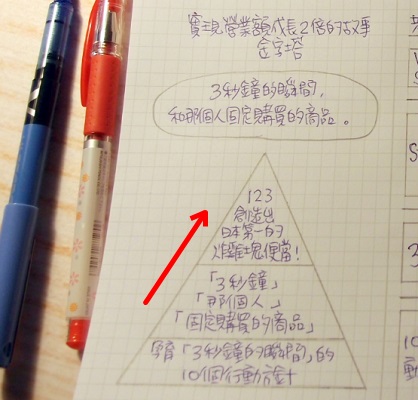 實現營業額成長2倍的故事
金字塔
3秒鐘的瞬間,
和那個人固定購買的商品。
123
創造出
日本第一的
炸雞塊便當!
「3秒鐘」
「那個人」
「固定購買的商品」
孕育「3秒鐘的瞬間」的
10個行動方針